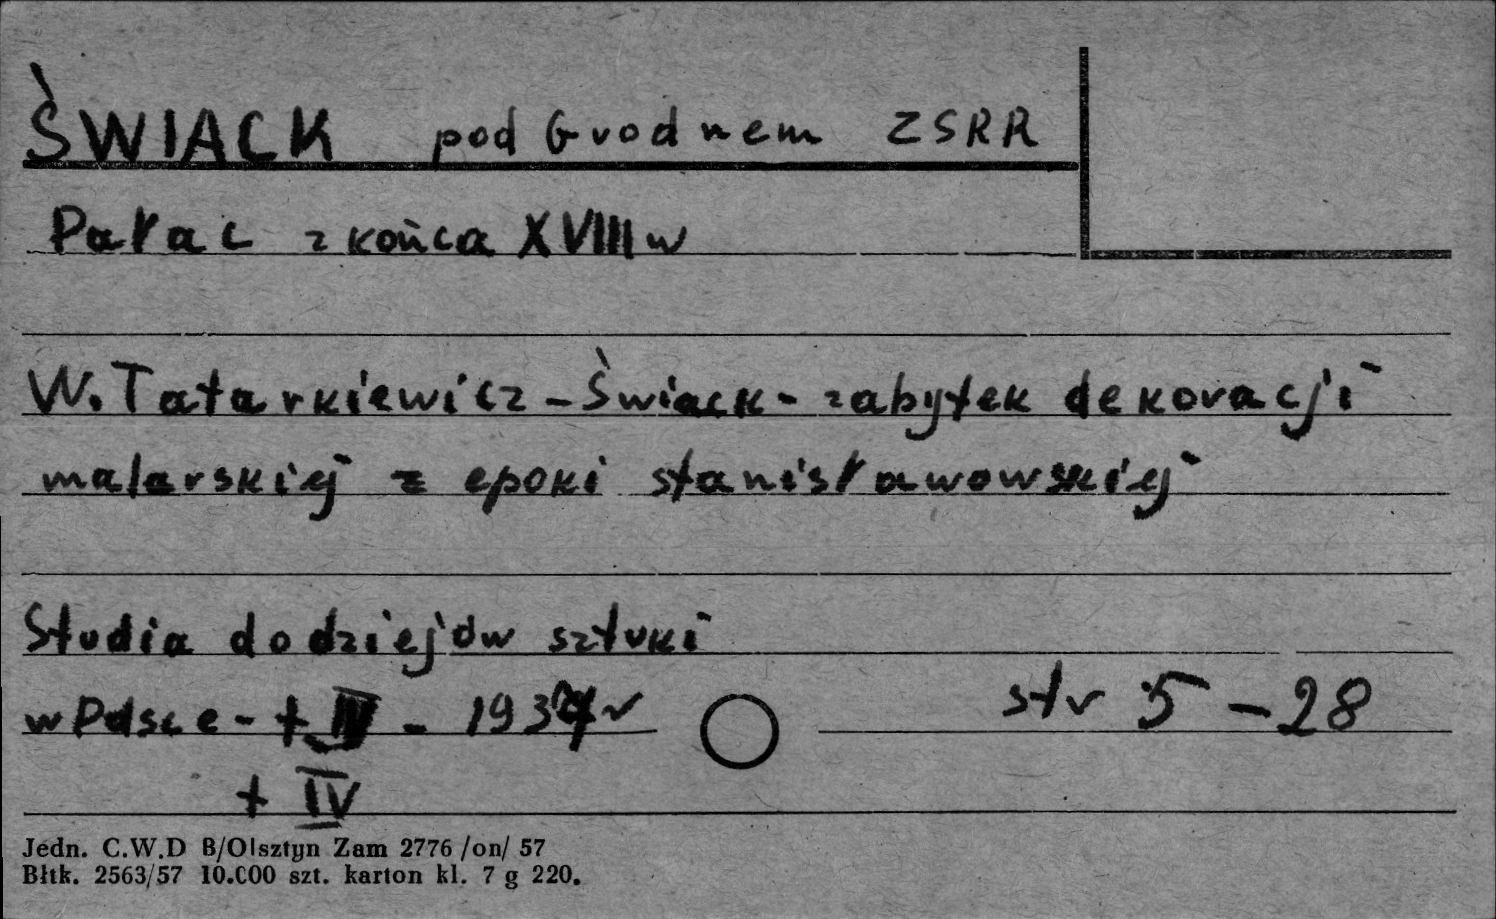 ŚWIACK pod Grodnem ZSRR
Pałac z końca XVIII w
W. Tatarkiewicz - Świack - zabytek dekoracji
malarskiej z epoki stanisławowskiej
Studia do dziejów sztuki
w Polsce - t IV - 193 r str 5 - 28
t IV
Jedn. C.W.D B/Olsztyn Zam 2776 /on/ 57
Błtk. 2563/57 10.000 szt. karton kl. 7 g 220.